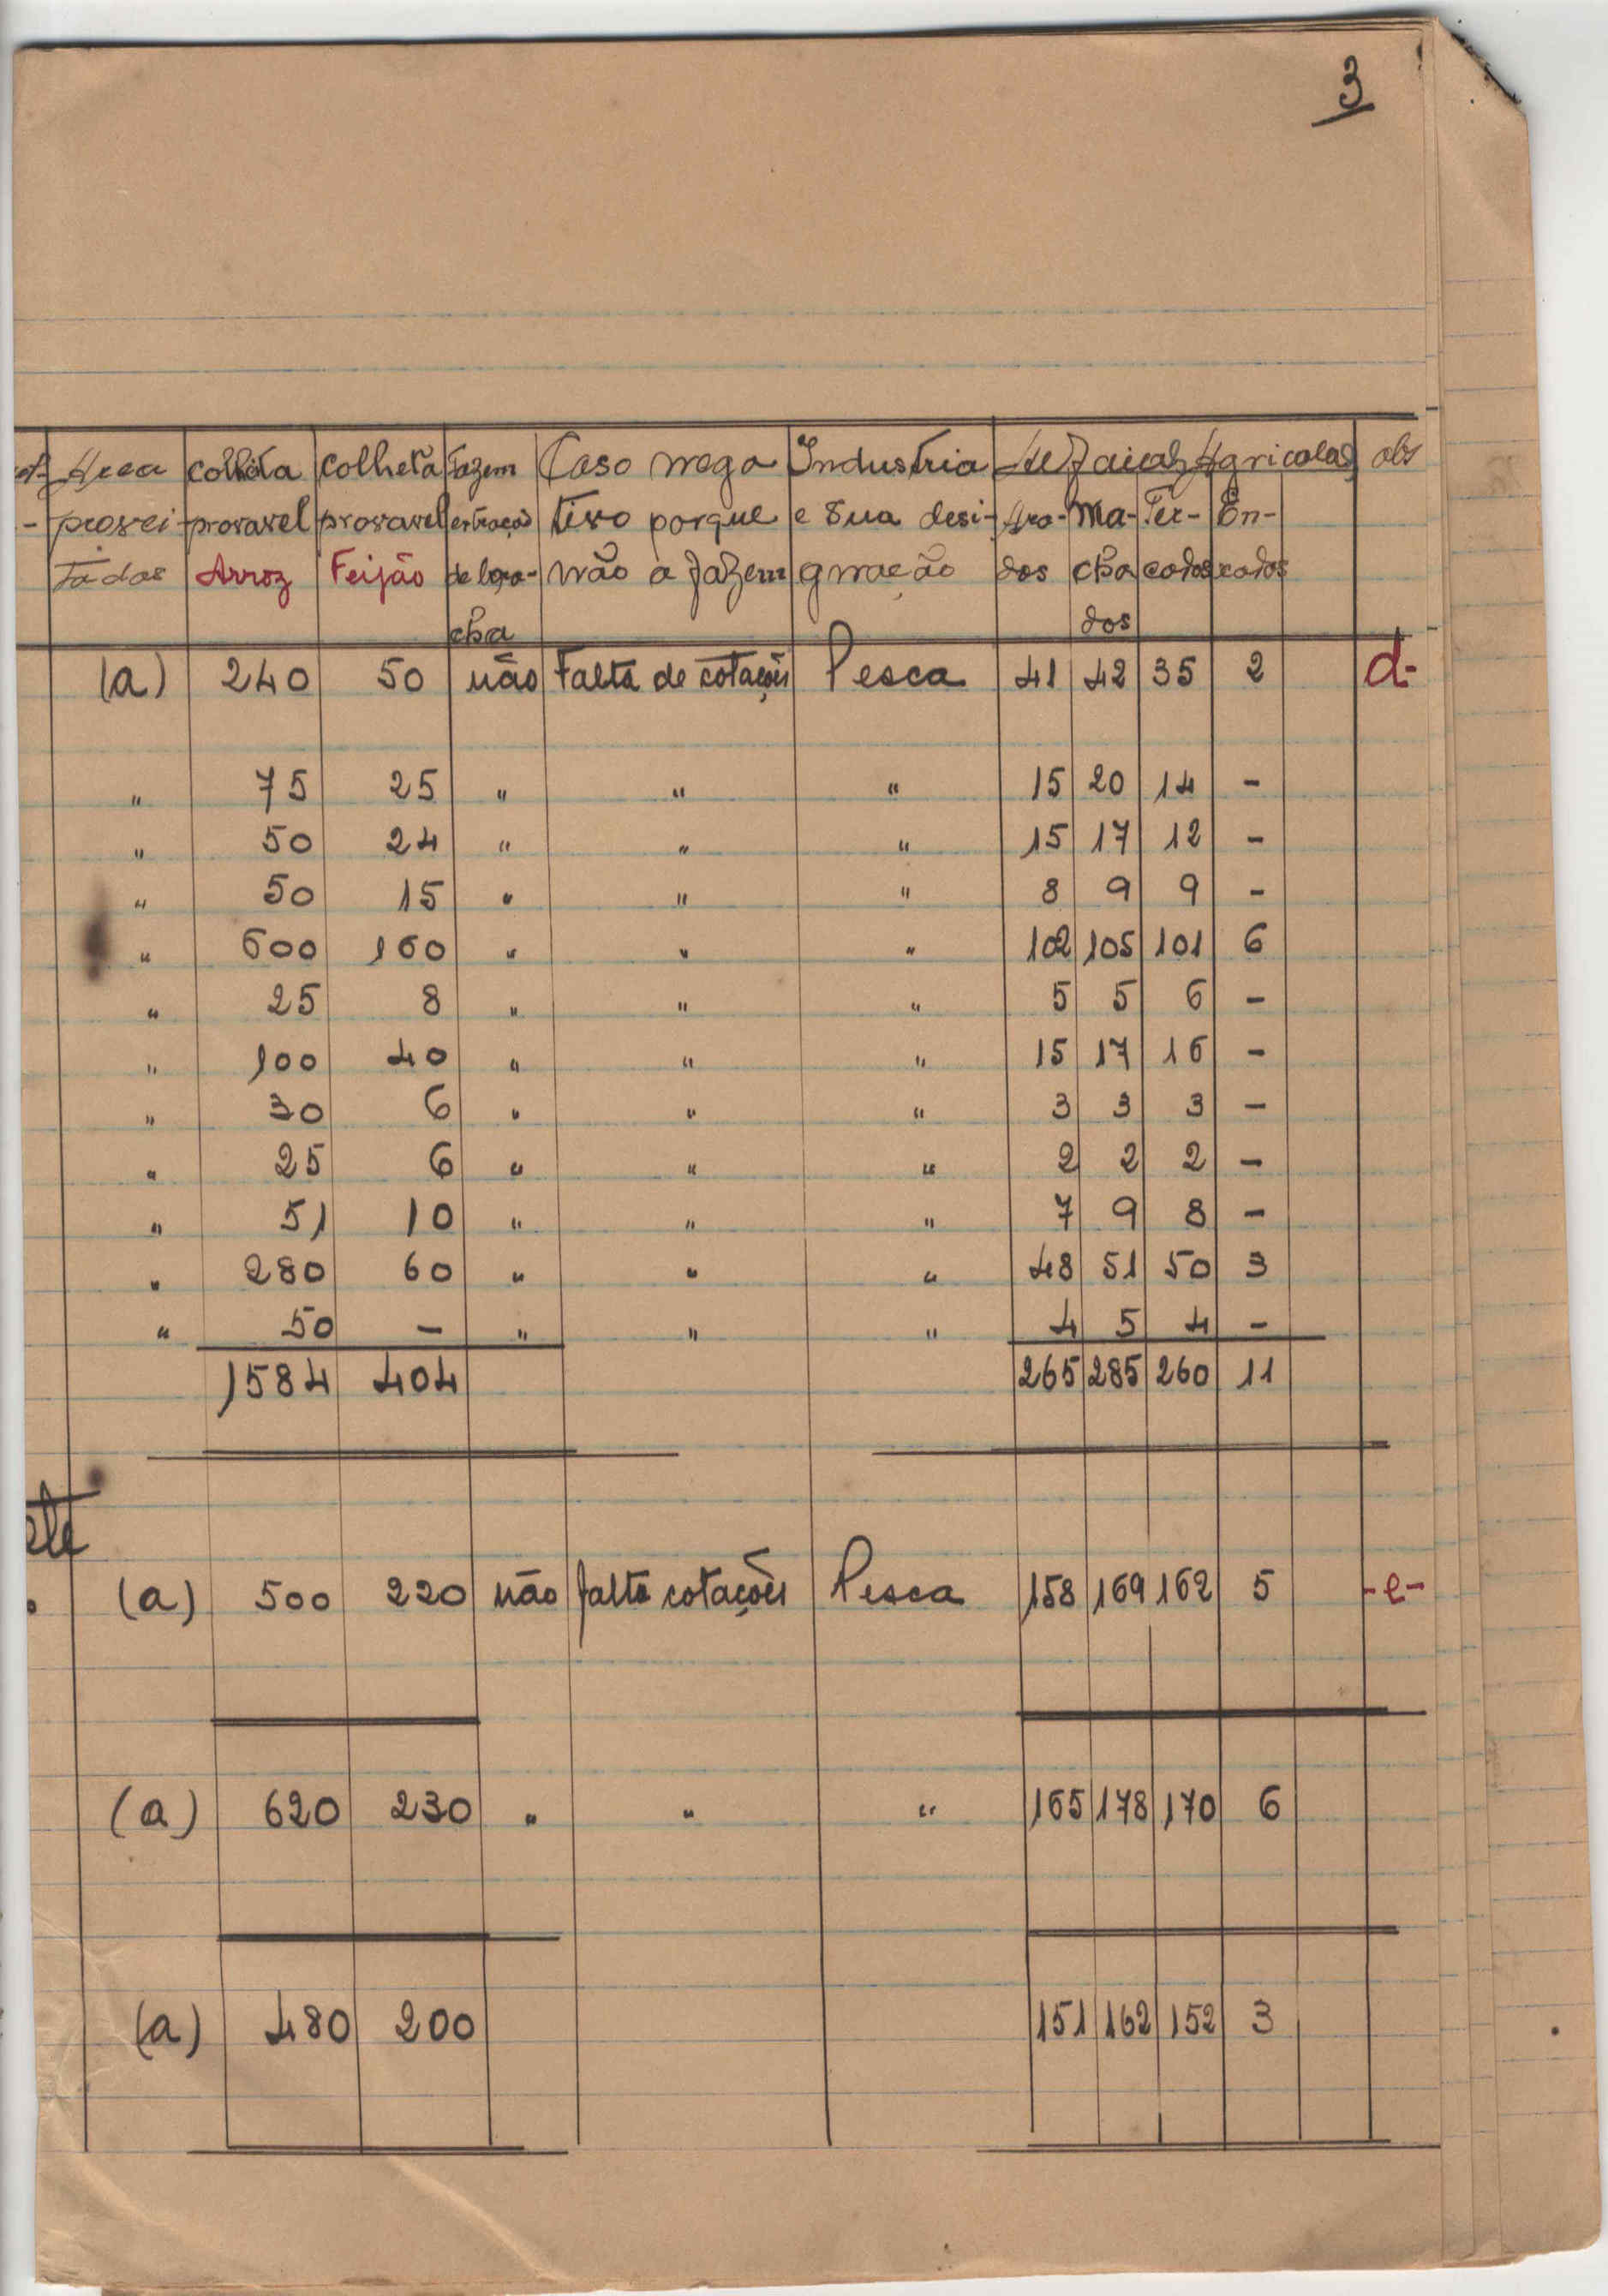 3
Area colheita colheta Fazem Caso nega Industria Alfaiah Agricolas obs
- provei provavel provavel extração tivo porque e sua desi- Ara- Ma- Ter- En-
tadas Arroz Feijão de bora- não a fazem gnação dos cha cados xados
cha dos
(a) 240 50 não Falta de cotações Pesca 41 42 35 2 d-
" 75 25 " " " 15 20 14 -
" 50 24 " " " 15 17 12 -
" 50 15 " " " 8 9 9 -
" 600 160 " " " 102 105 101 6
" 25 8 " " " 5 5 6 -
" 100 40 " " " 15 17 16 -
" 30 6 " " " 3 3 3 -
" 25 6 " " " 2 2 2 -
" 51 10 " " " 7 9 8 -
" 280 60 " " " 48 51 50 3
" 50 - " " " 4 5 4 -
1584 404 265 285 260 11
(a) 500 220 não falta cotações Pesca 158 169 162 5 -e-
(a) 620 230 " " " 165 178 170 6
(a) 480 200 151 162 152 3